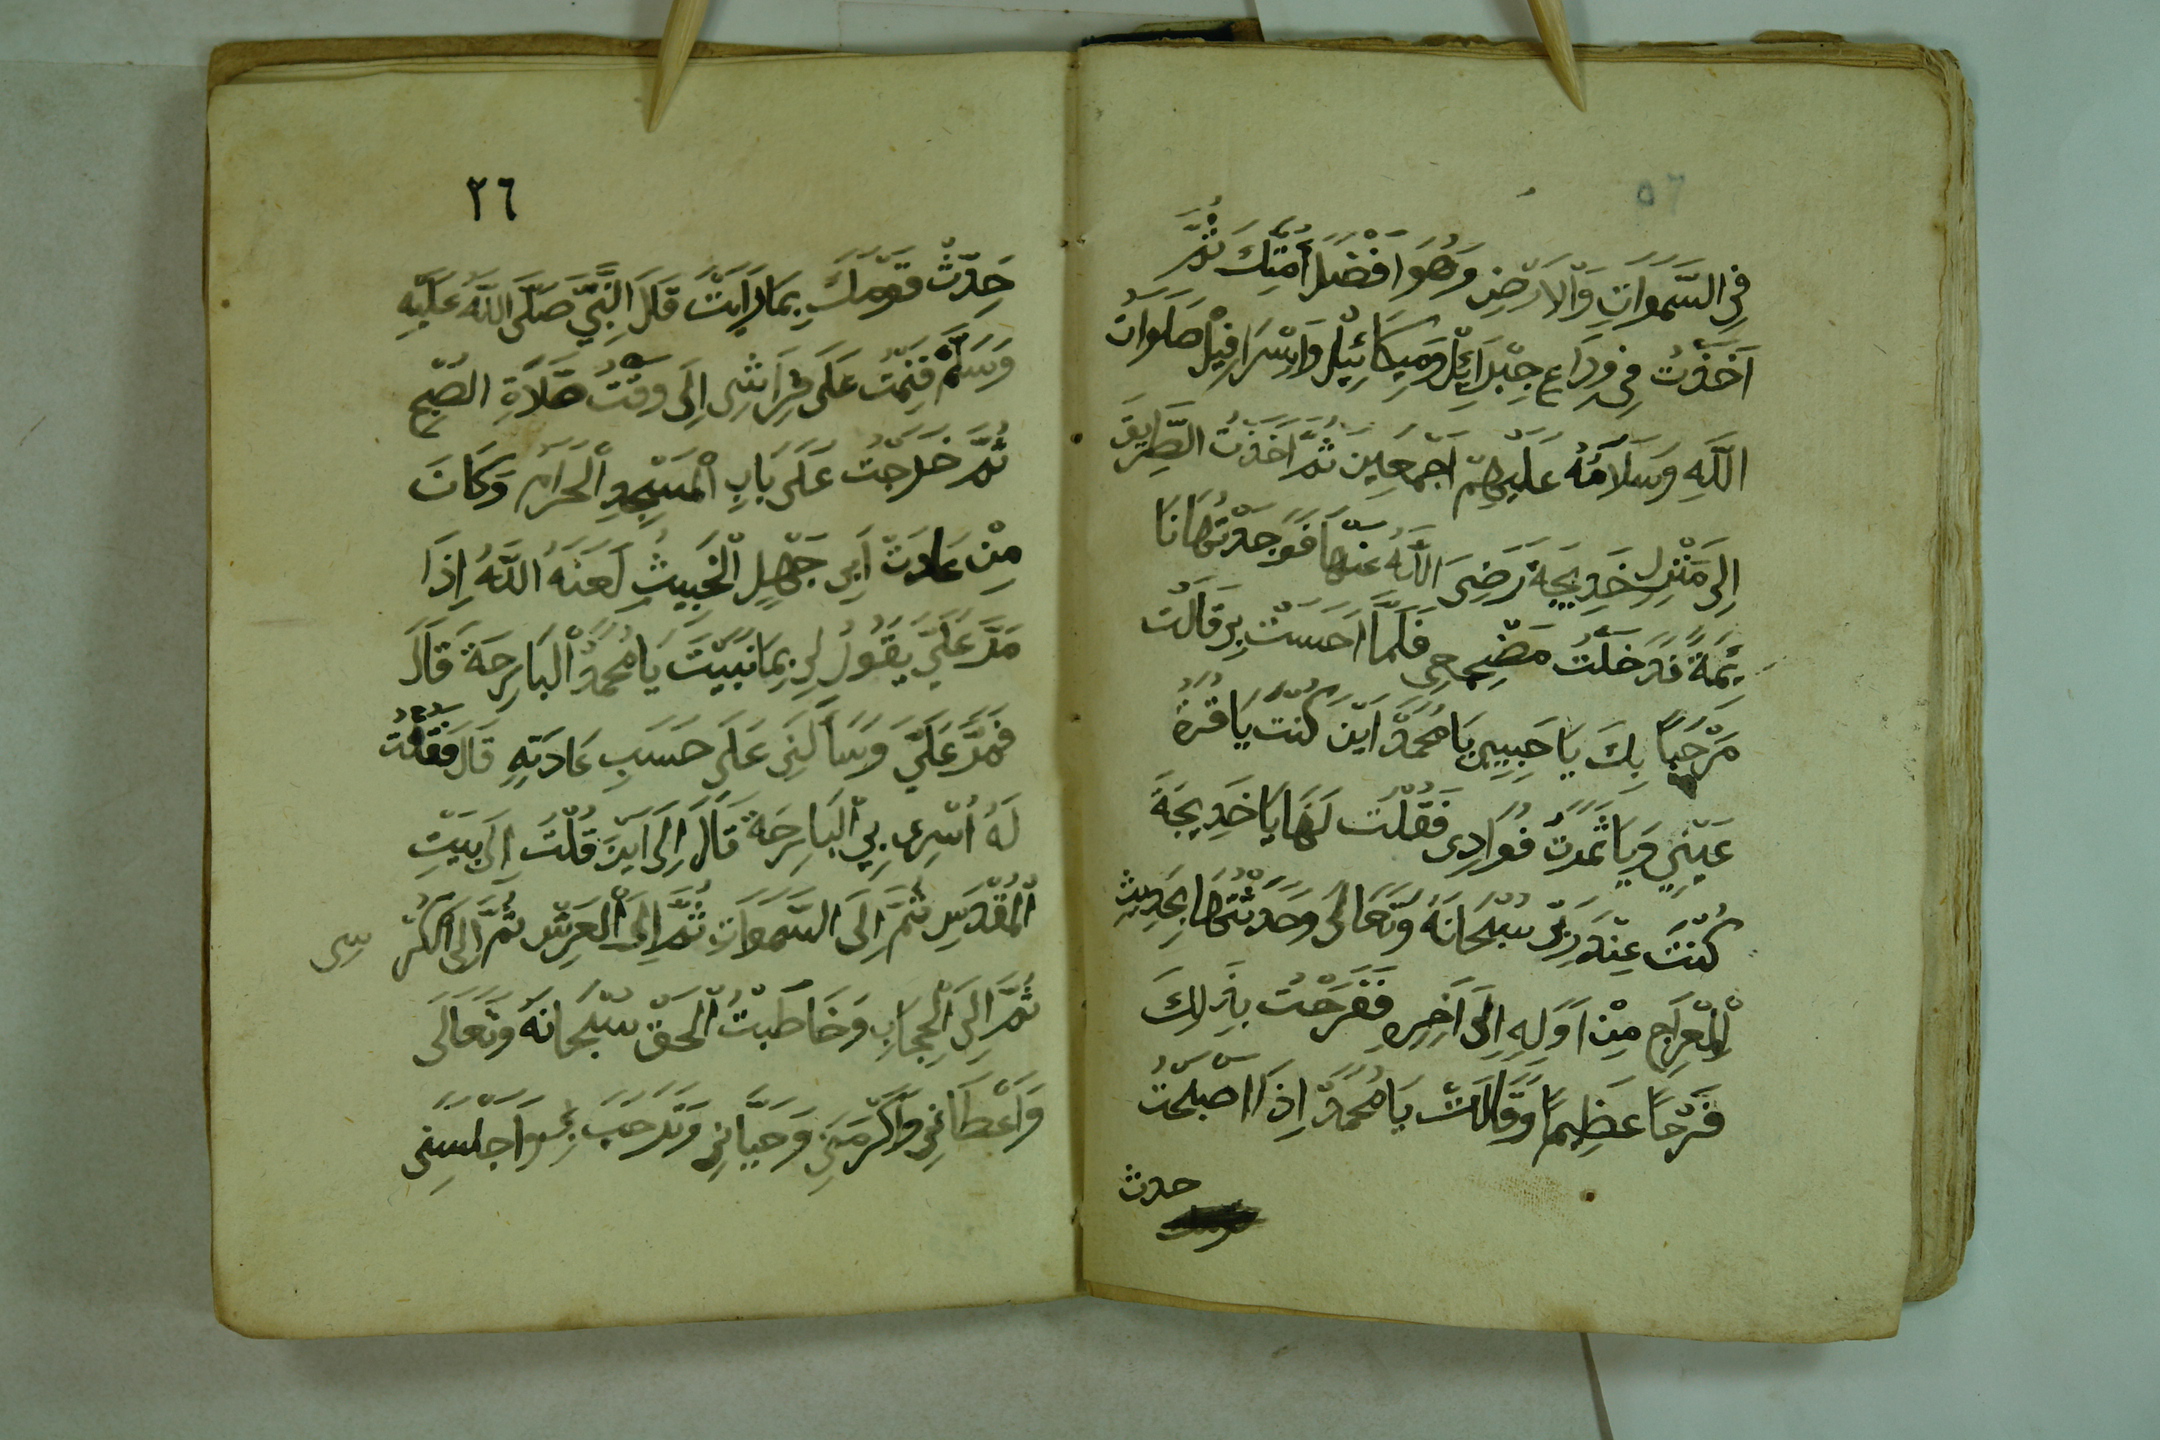 ٥٦
فِي السَّمَوَاتِ وَالْاَرْضِ وَهُوَ اَفْضَلُ اُمَّتِكَ ثُمَّ
اَخَذْتُ فِي وِدَاعِ جِبْرَائِلْ وَمِيكَائِيْلْ وَاِسْرَافِيْلْ صَلَوَاتُ
اللَّهِ وَسَلَامُهُ عَلَيْهِمْ اَجْمَعِينَ ثُمَّ اَخَذْتُ الطَّرِيقَ
اِلَى مَنْزِلِ خَدِيجَةَ رَضِيَ اللَّهُ عَنْهَا فَوَجَدْتُهَا نَا
يِمَةً فَدَخَلْتُ مَضْجِعِي فَلَمَّا اَحَسَّتْ بِي قَالَتْ
مَرْحَبًا بِكَ يَا حَبِيبِي يَا مُحَمَّدْ اَيْنَ كُنْتَ يَا قُرَّةَ
عَيْنِي وَيَا ثَمَرَتَ فُوَادِي فَقُلْتُ لَهَا يَا خَدِيجَةَ
كُنْتُ عِنْدَ رَبِّي سُبْحَانَهُ وَتَعَالَى وَحَدَّثْتُهَا بِحَدِيثِ
الْمِعْرَاجِ مِنْ اَوَّلِهِ اِلَى اَخِرِهِ فَفَرِحَتْ بِذَلِكَ
فَرْحًا عَظِيمًا وَقَالَتْ يَا مُحَمَّدْ اِذَا اَصْبَحْتَ
حدث
٢٦
حَدِّثْ قَوْمَكَ بِمَا رَاَيْتَ قَالَ النَّبِيُّ صَلَّى اللَّهُ عَلَيْهِ
وَسَلَّمْ فَنِمْتُ عَلَى فِرَاشِي اِلَى وَقْتِ صَلَاةِ الصُّبْحِ
ثُمَّ خَرَجْتُ عَلَى بَابِ الْمَسْجِدِ الْحَرَامِ وَكَانَ
مِنْ عَادَتْ اَبِي جَهْلِ الْخَبِيثِ لَعَنَهُ اللَّهُ اِذَا
مَرَّ عَلَيَّ يَقُولُ لِي بِمَا نُبِّيتَ يَا مُحَمَّدُ الْبَارِحَةَ قَالَ
فَمَرَّ عَلَيَّ وَسَاَلَنِي عَلَى حَسَبِ عَادَتِهِ قَالَ فَقُلْتُ
لَهُ اُسْرِيَ بِي الْبَارِحَةَ قَالَ اِلَى اَيْنَ قُلْتُ اِلَى بَيْتِ
الْمُقَدَّسِ ثُمَّ اِلَى السَّمَوَاتِ ثُمَّ اِلَى الْعَرْشِ ثُمَّ اِلَى الْكُرْسِي
ثُمَّ اِلَى الْحِجَابِ وَخَاطَبْتُ الْحَقَّ سُبْحَانَهُ وَتَعَالَى
وَاَعْطَانِي وَاَكْرَمَنِي وَحَيَّانِي وَتَرَحَّبَ بِي وَاَجْلَسَنِي